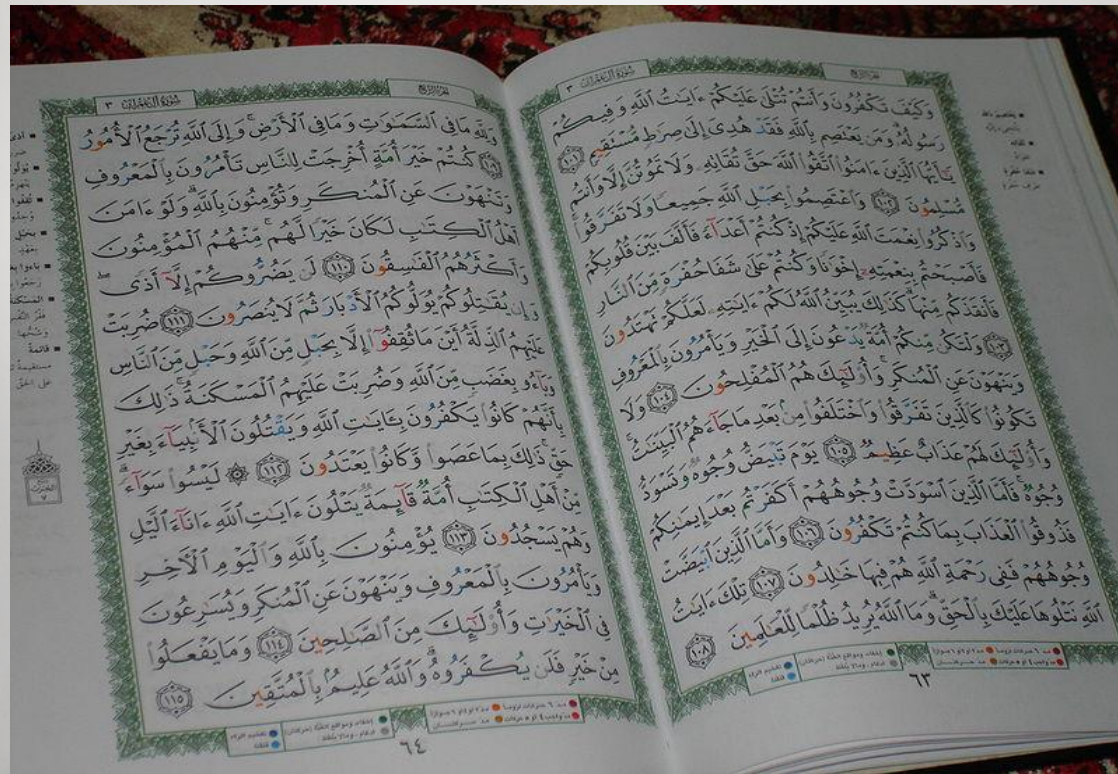 الجزء الرابع
سورة آل عمران ٣
وَكَيْفَ تَكْفُرُونَ وَأَنتُمْ تُتْلَىٰ عَلَيْكُمْ ءَايَٰتُ ٱللَّهِ وَفِيكُمْ
رَسُولُهُۥ وَمَن يَعْتَصِم بِٱللَّهِ فَقَدْ هُدِىَ إِلَىٰ صِرَٰطٍ مُّسْتَقِيمٍ ١٠١
يَٰٓأَيُّهَا ٱلَّذِينَ ءَامَنُوا۟ ٱتَّقُوا۟ ٱللَّهَ حَقَّ تُقَاتِهِۦ وَلَا تَمُوتُنَّ إِلَّا وَأَنتُم
مُّسْلِمُونَ ١٠٢ وَٱعْتَصِمُوا۟ بِحَبْلِ ٱللَّهِ جَمِيعًا وَلَا تَفَرَّقُوا۟ ۚ
وَٱذْكُرُوا۟ نِعْمَتَ ٱللَّهِ عَلَيْكُمْ إِذْ كُنتُمْ أَعْدَآءً فَأَلَّفَ بَيْنَ قُلُوبِكُمْ
فَأَصْبَحْتُم بِنِعْمَتِهِۦٓ إِخْوَٰنًا وَكُنتُمْ عَلَىٰ شَفَا حُفْرَةٍ مِّنَ ٱلنَّارِ
فَأَنقَذَكُم مِّنْهَا ۗ كَذَٰلِكَ يُبَيِّنُ ٱللَّهُ لَكُمْ ءَايَٰتِهِۦ لَعَلَّكُمْ تَهْتَدُونَ
١٠٣ وَلْتَكُن مِّنكُمْ أُمَّةٌ يَدْعُونَ إِلَى ٱلْخَيْرِ وَيَأْمُرُونَ بِٱلْمَعْرُوفِ
وَيَنْهَوْنَ عَنِ ٱلْمُنكَرِ ۚ وَأُو۟لَٰٓئِكَ هُمُ ٱلْمُفْلِحُونَ ١٠٤ وَلَا
تَكُونُوا۟ كَٱلَّذِينَ تَفَرَّقُوا۟ وَٱخْتَلَفُوا۟ مِنۢ بَعْدِ مَا جَآءَهُمُ ٱلْبَيِّنَٰتُ ۚ
وَأُو۟لَٰٓئِكَ لَهُمْ عَذَابٌ عَظِيمٌ ١٠٥ يَوْمَ تَبْيَضُّ وُجُوهٌ وَتَسْوَدُّ
وُجُوهٌ ۚ فَأَمَّا ٱلَّذِينَ ٱسْوَدَّتْ وُجُوهُهُمْ أَكَفَرْتُم بَعْدَ إِيمَٰنِكُمْ
فَذُوقُوا۟ ٱلْعَذَابَ بِمَا كُنتُمْ تَكْفُرُونَ ١٠٦ وَأَمَّا ٱلَّذِينَ ٱبْيَضَّتْ
وُجُوهُهُمْ فَفِى رَحْمَةِ ٱللَّهِ هُمْ فِيهَا خَٰلِدُونَ ١٠٧ تِلْكَ ءَايَٰتُ
ٱللَّهِ نَتْلُوهَا عَلَيْكَ بِٱلْحَقِّ ۗ وَمَا ٱللَّهُ يُرِيدُ ظُلْمًا لِّلْعَٰلَمِينَ ١٠٨
٦٣
الجزء الرابع
سورة آل عمران ٣
وَلِلَّهِ مَا فِى ٱلسَّمَٰوَٰتِ وَمَا فِى ٱلْأَرْضِ ۚ وَإِلَى ٱللَّهِ تُرْجَعُ ٱلْأُمُورُ
١٠٩ كُنتُمْ خَيْرَ أُمَّةٍ أُخْرِجَتْ لِلنَّاسِ تَأْمُرُونَ بِٱلْمَعْرُوفِ
وَتَنْهَوْنَ عَنِ ٱلْمُنكَرِ وَتُؤْمِنُونَ بِٱللَّهِ ۗ وَلَوْ ءَامَنَ
أَهْلُ ٱلْكِتَٰبِ لَكَانَ خَيْرًا لَّهُم ۚ مِّنْهُمُ ٱلْمُؤْمِنُونَ
وَأَكْثَرُهُمُ ٱلْفَٰسِقُونَ ١١٠ لَن يَضُرُّوكُمْ إِلَّآ أَذًى ۖ
وَإِن يُقَٰتِلُوكُمْ يُوَلُّوكُمُ ٱلْأَدْبَارَ ثُمَّ لَا يُنصَرُونَ ١١١ ضُرِبَتْ
عَلَيْهِمُ ٱلذِّلَّةُ أَيْنَ مَا ثُقِفُوٓا۟ إِلَّا بِحَبْلٍ مِّنَ ٱللَّهِ وَحَبْلٍ مِّنَ ٱلنَّاسِ
وَبَآءُو بِغَضَبٍ مِّنَ ٱللَّهِ وَضُرِبَتْ عَلَيْهِمُ ٱلْمَسْكَنَةُ ۚ ذَٰلِكَ
بِأَنَّهُمْ كَانُوا۟ يَكْفُرُونَ بِـَٔايَٰتِ ٱللَّهِ وَيَقْتُلُونَ ٱلْأَنۢبِيَآءَ بِغَيْرِ
حَقٍّ ۚ ذَٰلِكَ بِمَا عَصَوا۟ وَّكَانُوا۟ يَعْتَدُونَ ١١٢ ۞ لَيْسُوا۟ سَوَآءً ۗ
مِّنْ أَهْلِ ٱلْكِتَٰبِ أُمَّةٌ قَآئِمَةٌ يَتْلُونَ ءَايَٰتِ ٱللَّهِ ءَانَآءَ ٱلَّيْلِ
وَهُمْ يَسْجُدُونَ ١١٣ يُؤْمِنُونَ بِٱللَّهِ وَٱلْيَوْمِ ٱلْءَاخِرِ
وَيَأْمُرُونَ بِٱلْمَعْرُوفِ وَيَنْهَوْنَ عَنِ ٱلْمُنكَرِ وَيُسَٰرِعُونَ
فِى ٱلْخَيْرَٰتِ وَأُو۟لَٰٓئِكَ مِنَ ٱلصَّٰلِحِينَ ١١٤ وَمَا يَفْعَلُوا۟
مِنْ خَيْرٍ فَلَن يُكْفَرُوهُ ۗ وَٱللَّهُ عَلِيمٌۢ بِٱلْمُتَّقِينَ ١١٥
٦٤